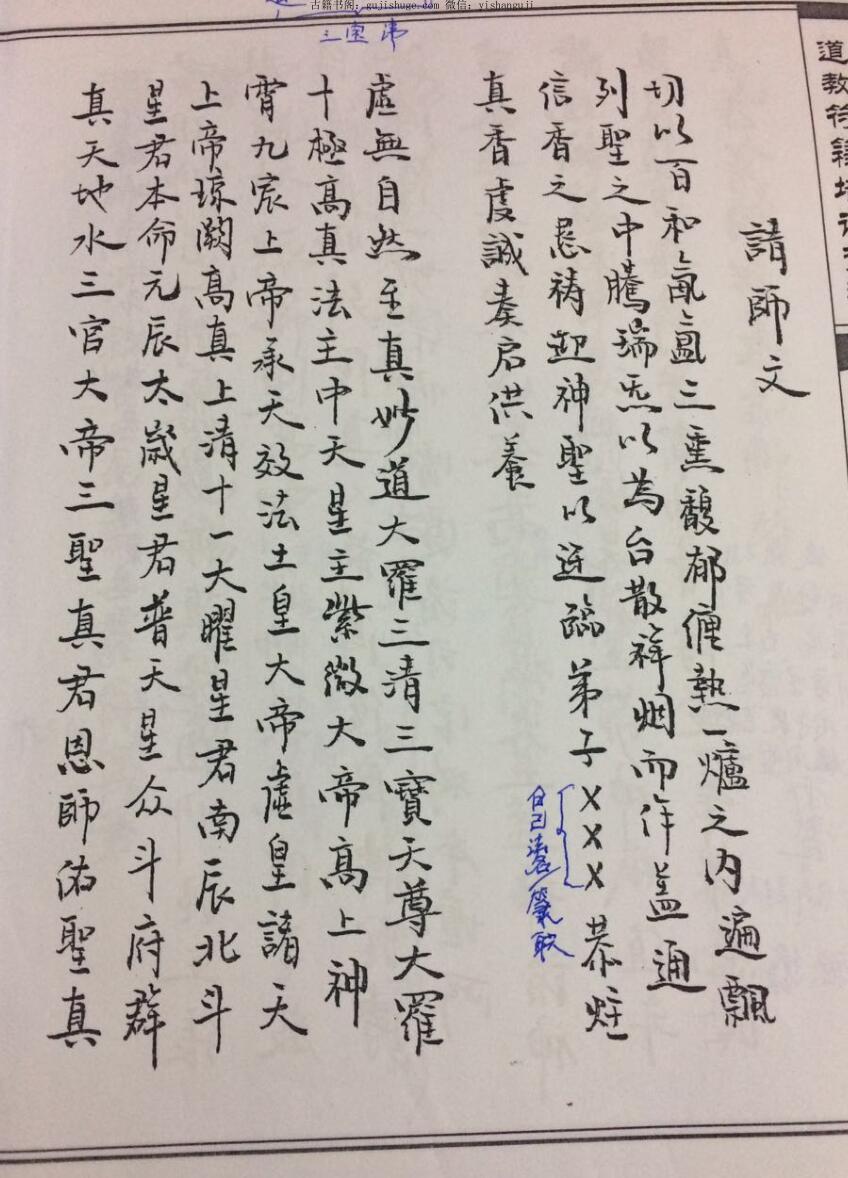 古籍书阁：gujishuge.com 微信：yishanguji
三宝
道教符籙培
請師文
切以百和氤氳三熏馥郁僾熱一爐之内遍飄
列聖之中騰瑞炁以為台散祥烟而作蓋通
信香之忌祷迎神聖以迓臨弟子XXX恭炷
自己法名/籙职
真香虔誠奏启供養
虛無自然至真妙道大羅三清三寶天尊大羅
十極高真法主中天星主紫微大帝高上神
霄九宸上帝承天效法土皇大帝虛皇諸天
上帝琼闕高真上清十一大曜星君南辰北斗
星君本命元辰太歲星君普天星众斗府群
真天地水三官大帝三聖真君恩師佑聖真